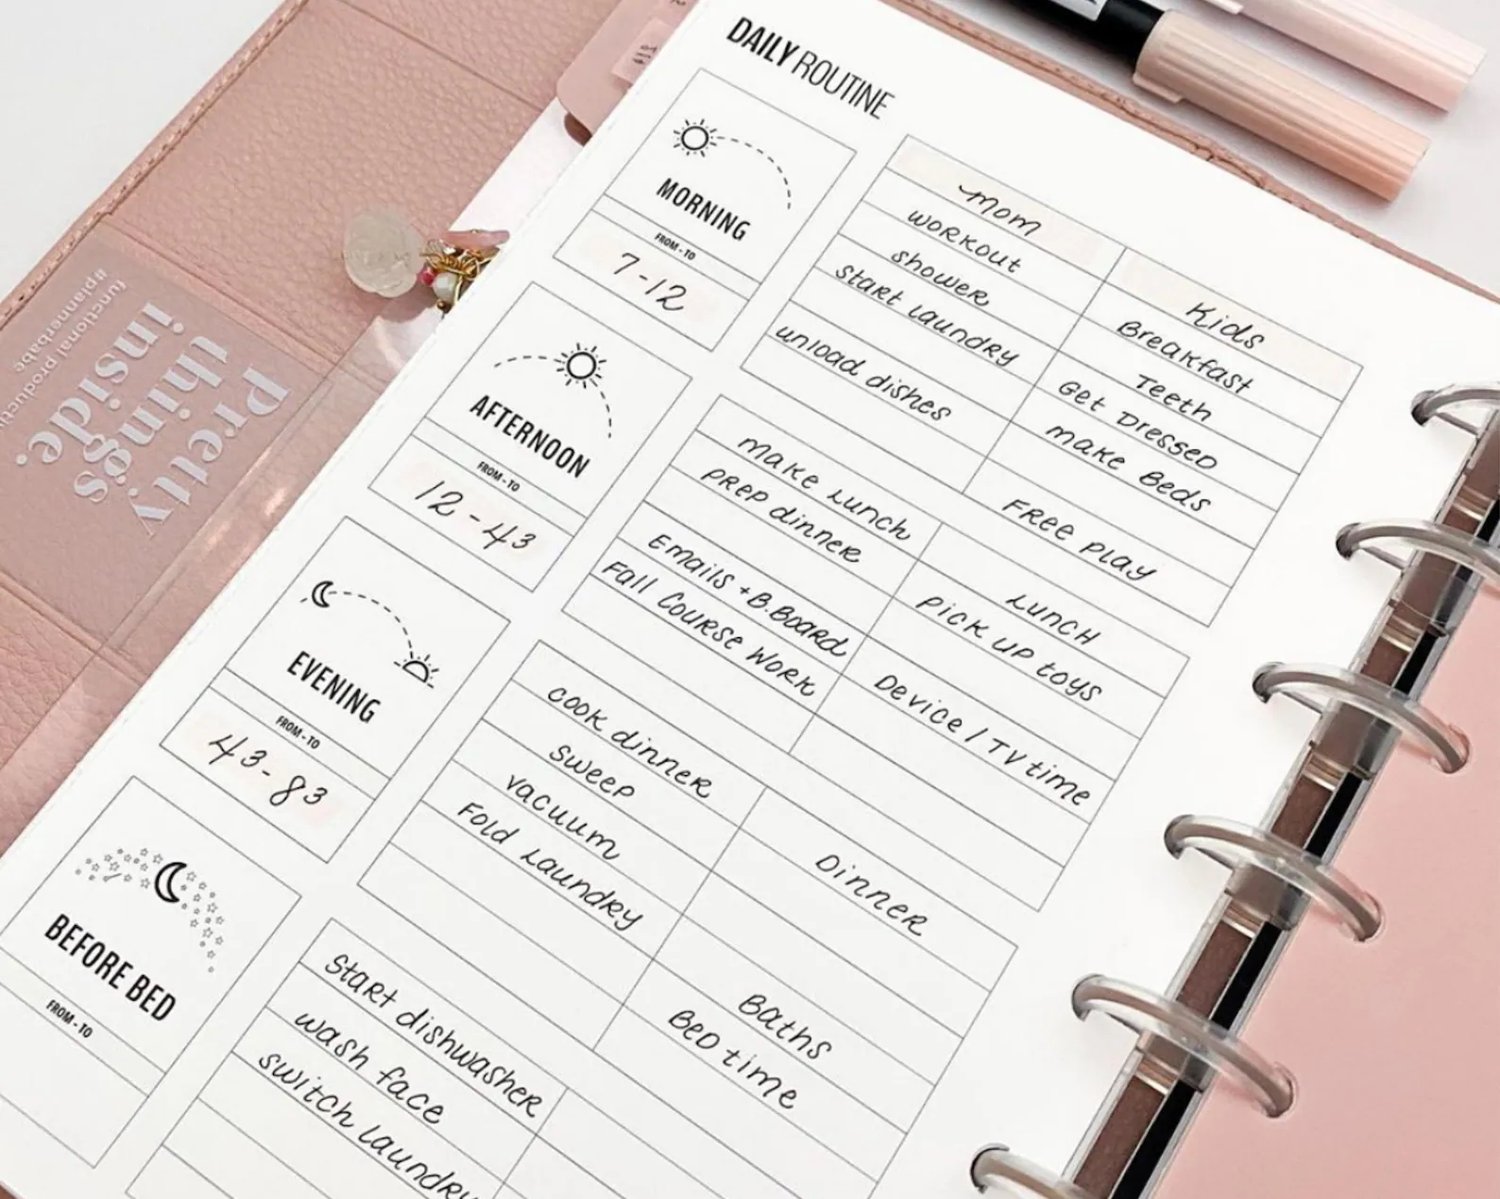 DAILY ROUTINE
MORNING
FROM - TO
7-12
mom
workout
shower
start laundry
unload dishes
Kids
Breakfast
Teeth
Get Dressed
make Beds
Free play
AFTERNOON
FROM - TO
12-43
make lunch
prep dinner
Emails + B.Board
Fall Course Work
Lunch
pick up toys
Device / TV time
EVENING
FROM - TO
43-83
cook dinner
sweep
vacuum
Fold laundry
Dinner
Baths
Bed time
BEFORE BED
FROM - TO
start dishwasher
wash face
switch laundry
Pretty
things
inside.
#plannerbabe